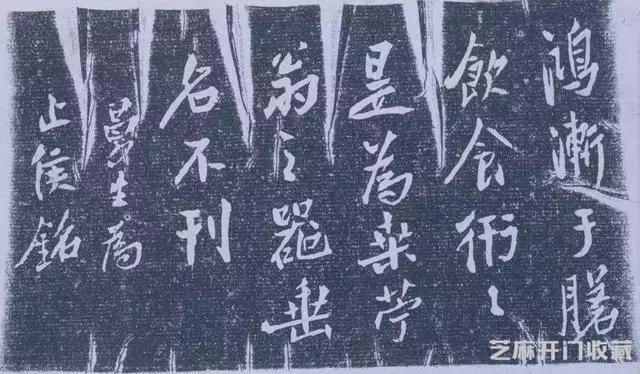 鴻漸于磐
飲食衎々
是為桑苧
翁之器垂
名不刊
曼生為
止侯銘
芝麻开门收藏